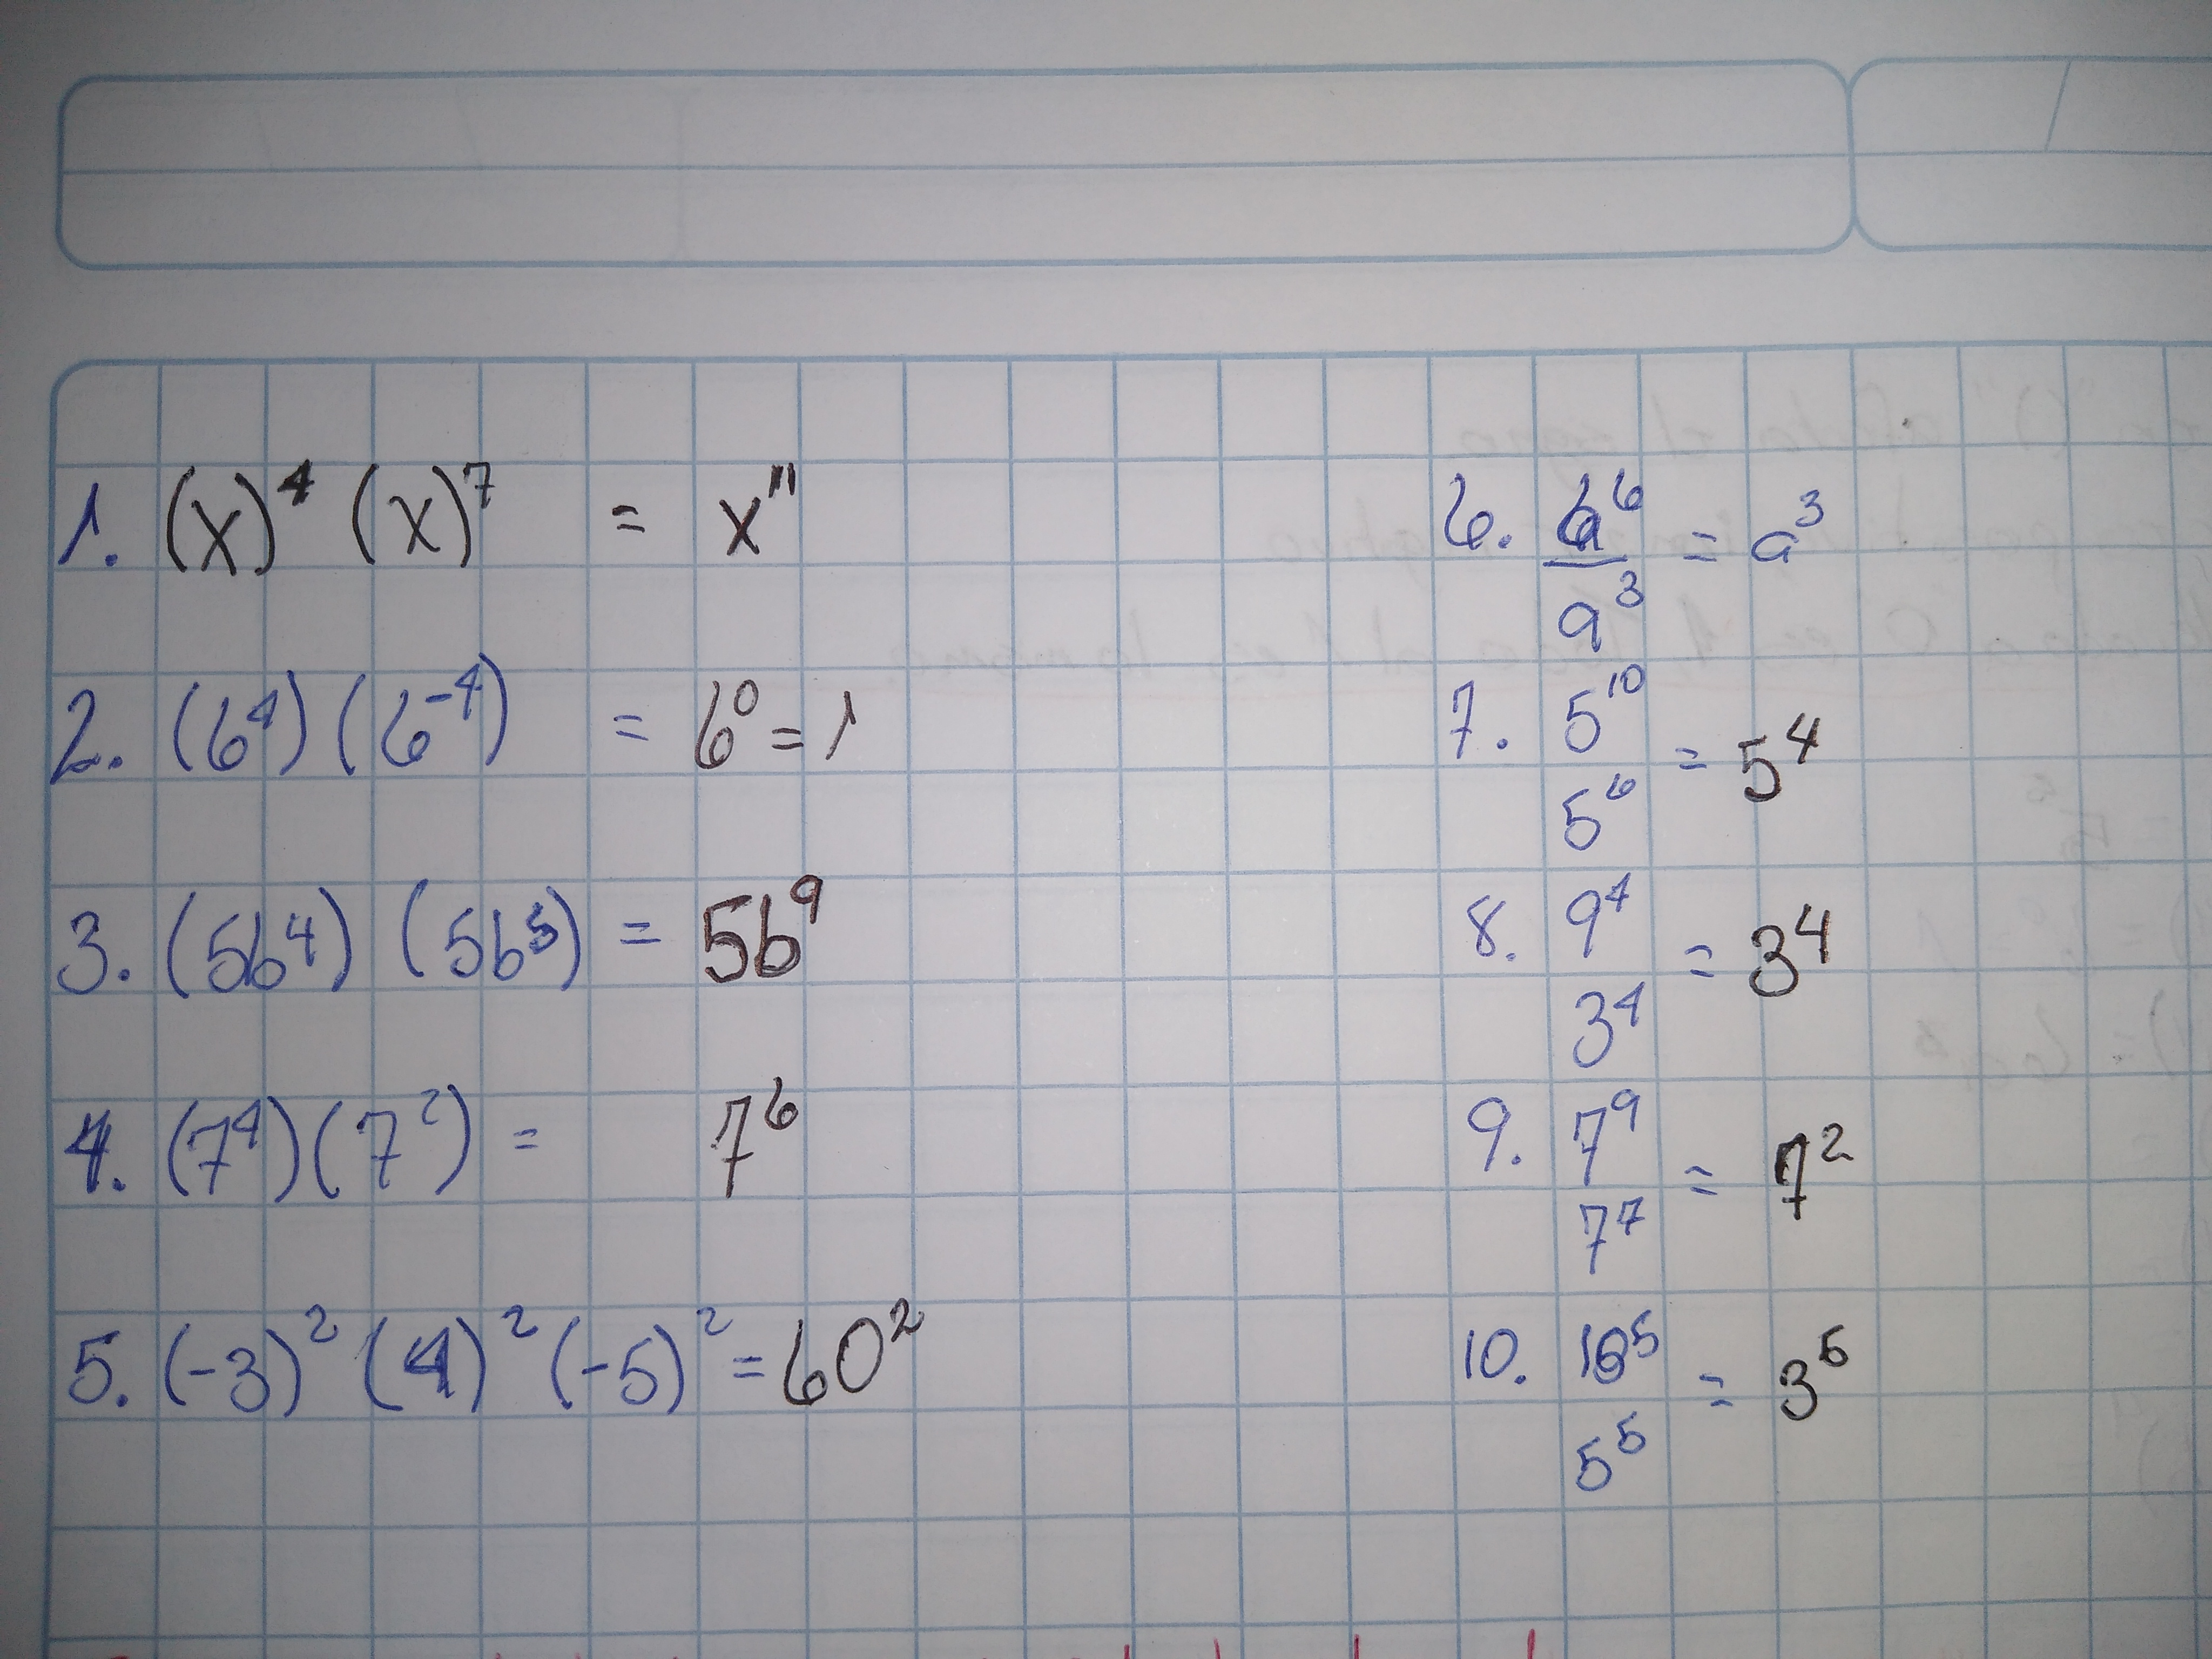 1. (x)⁴ (x)⁷ = x¹¹
2. (6⁴)(6⁻⁴) = 6⁰ = 1
3. (5b⁴) (5b⁵) = 5b⁹
4. (7⁴)(7²) = 7⁶
5. (-3)² (4)² (-5)² = 60²
6. a⁶ = a³
a³
7. 5¹⁰ = 5⁴
5⁶
8. 9⁴ = 3⁴
3⁴
9. 7⁹ = 7²
7⁷
10. 5⁵